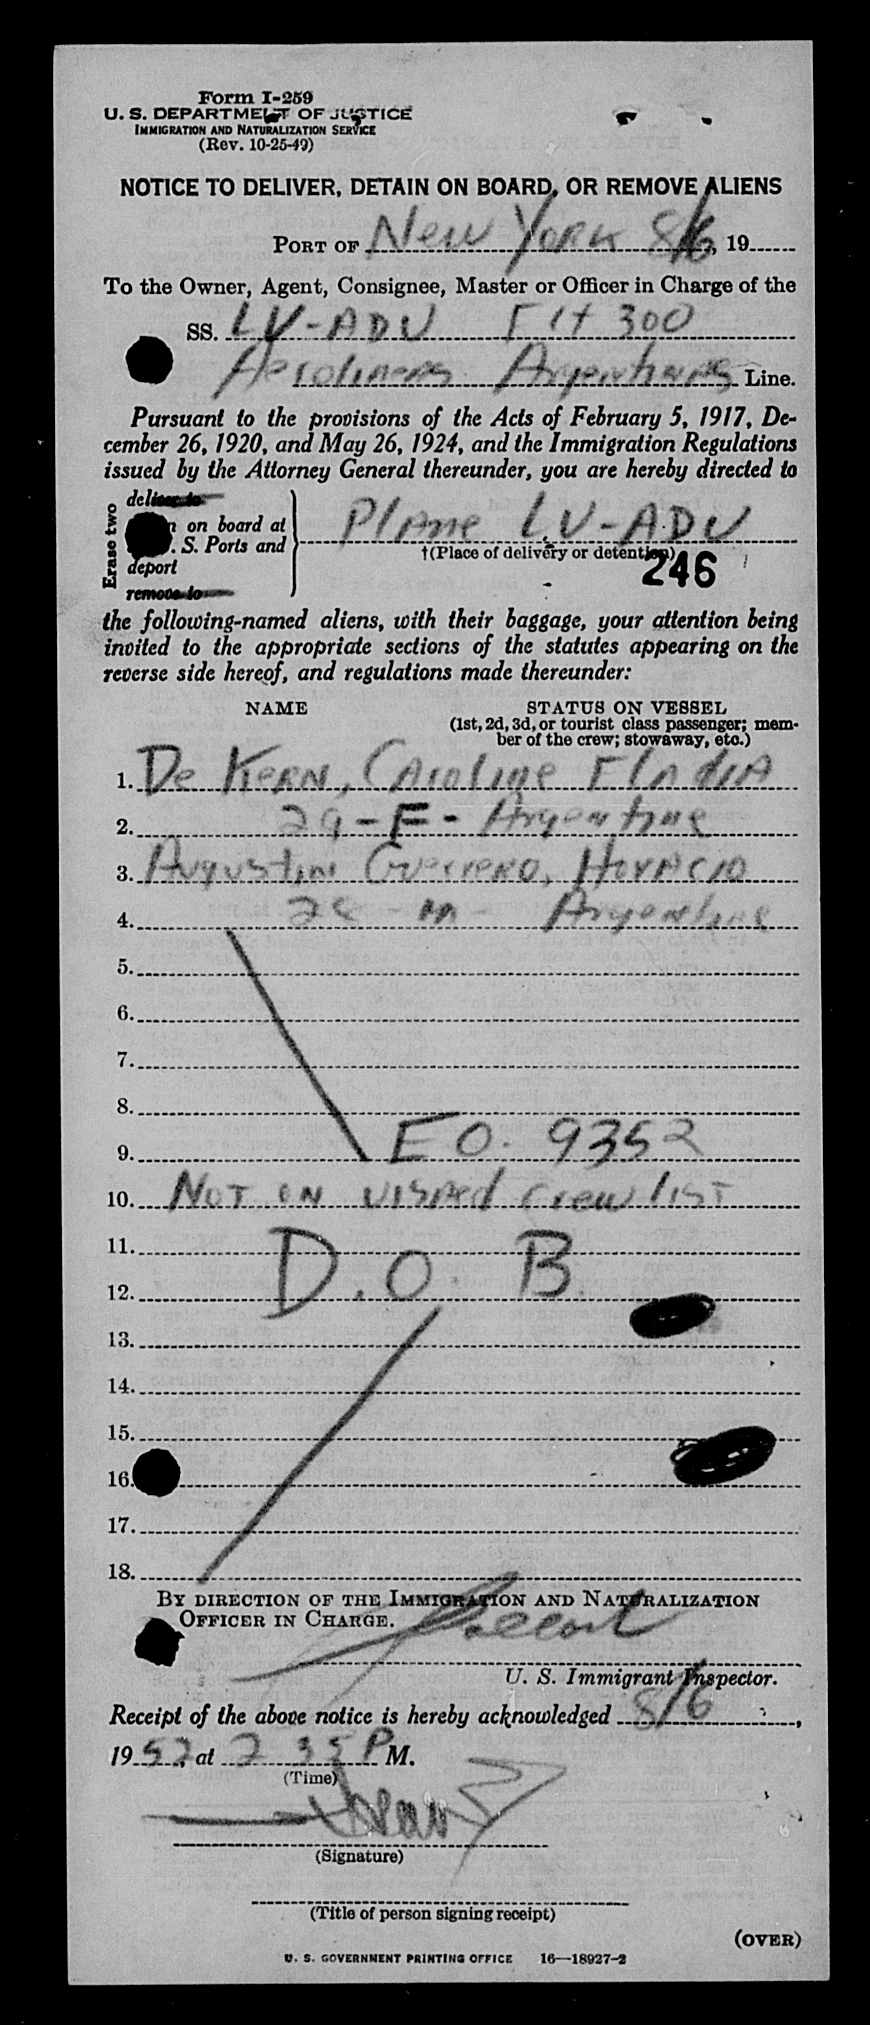 Form I-259
U. S. DEPARTMENT OF JUSTICE
IMMIGRATION AND NATURALIZATION SERVICE
(Rev. 10-25-49)
NOTICE TO DELIVER, DETAIN ON BOARD, OR REMOVE ALIENS
PORT OF New York 8/6, 19
To the Owner, Agent, Consignee, Master or Officer in Charge of the
SS. LV-ADU Flt 300
Aerolineas Argentinas Line.
Pursuant to the provisions of the Acts of February 5, 1917, De-
cember 26, 1920, and May 26, 1924, and the Immigration Regulations
issued by the Attorney General thereunder, you are hereby directed to
Erase two
deliver to
on board at
S. Ports and
deport
remove to
Plane LV-ADU
†(Place of delivery or detention)
246
the following-named aliens, with their baggage, your attention being
invited to the appropriate sections of the statutes appearing on the
reverse side hereof, and regulations made thereunder:
NAME STATUS ON VESSEL
(1st, 2d, 3d, or tourist class passenger; mem-
ber of the crew; stowaway, etc.)
1. De Kern, Caroline Eladia
2. 29 - F - Argentine
3. Augustin Guerrero, Horacio
4. 28 - M - Argentine
5.
6.
7.
8.
9. EO. 9352
10. Not on visaed crew list
11. D.O B.
12.
13.
14.
15.
16.
17.
18.
BY DIRECTION OF THE IMMIGRATION AND NATURALIZATION
OFFICER IN CHARGE.
U. S. Immigrant Inspector.
Receipt of the above notice is hereby acknowledged 8/6,
1952, at 2 35 P M.
(Time)
(Signature)
(Title of person signing receipt)
(OVER)
U. S. GOVERNMENT PRINTING OFFICE 16—18927-2